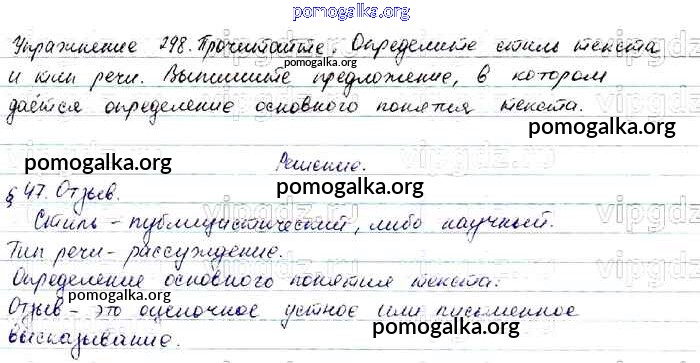 pomogalka.org
Упражнение 298. Прочитайте. Определите стиль текста
pomogalka.org
и тип речи. Выпишите предложение, в котором
даётся определение основного понятия текста.
pomogalka.org
Решение.
pomogalka.org
pomogalka.org
§ 47. Отзыв.
Стиль - публицистический, либо научный.
Тип речи - рассуждение.
Определение основного понятия текста:
pomogalka.org
Отзыв - это оценочное устное или письменное
высказывание.
pomogalka.org